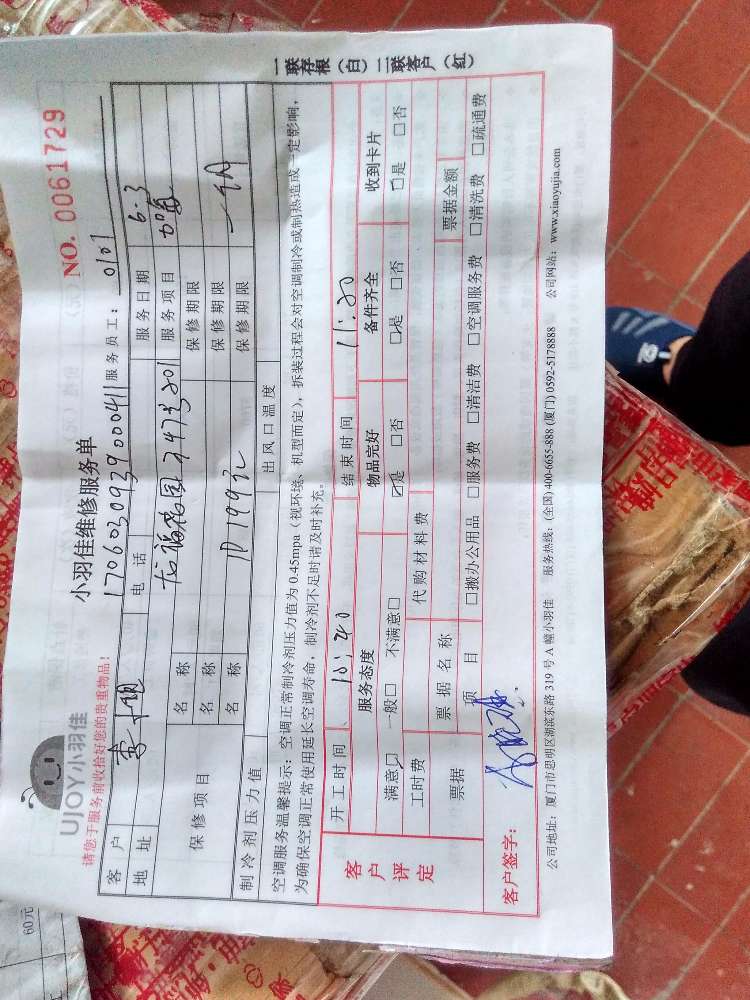 一联存根（白）二联客户（红）
UJOY小羽佳
小羽佳维修服务单
NO. 0061729
请您于服务前收拾好您的贵重物品！
170603093900041
服务员工： 0107
客户
电话
服务日期 6-3
地址
服务项目 加氟
保修项目
名称
保修期限
名称
保修期限
名称
保修期限
制冷剂压力值
出风口温度
空调服务温馨提示：空调正常制冷剂压力值为 0.45mpa（视环境、机型而定），拆装过程会对空调制冷或制热造成一定影响，
为确保空调正常使用延长空调寿命，制冷剂不足时请及时补充。
客户评定
开工时间 10:40 结束时间 11:20
服务态度 物品完好 备件齐全 收到卡片
满意□ 一般□ 不满意□ □是 □否 □是 □否 □是 □否
工时费 代购材料费
票据 票据名称 票据金额
项目 □搬办公用品 □服务费 □清洁费 □空调服务费 □清洗费 □疏通费
客户签字：
公司地址：厦门市思明区湖滨东路 319 号 A 幢小羽佳 服务热线：(全国) 400-6655-888 (厦门) 0592-5178888 公司网站：www.xiaoyujia.com
60元